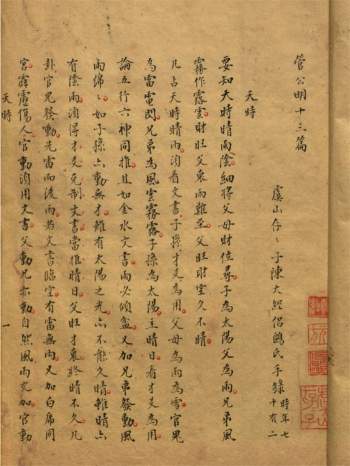 管公明十三篇
虞山存〻子陳大經侶鷗氏手錄 時年七十有二
天時
要知天時晴雨陰細將父母財位尋子為太陽父為雨兄弟風
霧作露雲財旺父衰雨難至父旺財空久不晴
凡占天時晴雨須看文書子孫才爻為用父母為雨為雪官鬼
為雷電閃兄弟為風雲霧露子孫為太陽主晴日看才爻為用
論五行六神同推且如金水文書雨必傾盆又加兄弟發動風
雨綿〻如子孫亦動無才雖有太陽之光亦不能久晴雖晴亦
有陰雨須得才爻克制文書當推晴日父旺才衰終晴不久凡
卦官兄發動先雷而後雨若文書臨官有雷無雨又加白虎同
宮霹靂傷人官動須用文書父動兄亦動自然風雨交加官動
天時
一